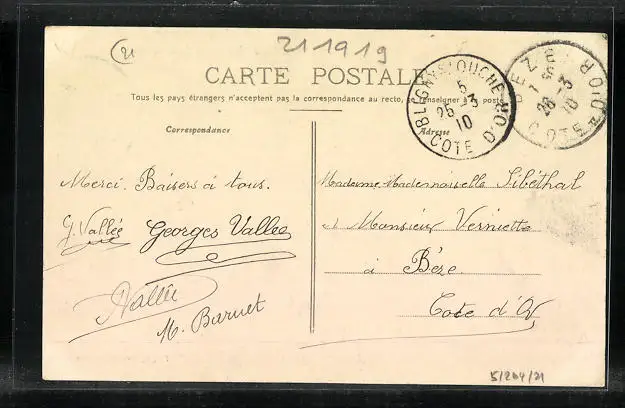 21
211919
CARTE POSTALE
Tous les pays étrangers n'acceptent pas la correspondance au recto, se renseigner à la poste
BLIGNY-S-OUCHE
5
25 -3
10
COTE D'OR
BEZE
7
26 -3
10
COTE D'OR
Correspondance
Adresse
Merci. Baisers à tous.
G. Vallée Georges Vallée
Vallée
M. Barnet
Madame Mademoiselle Sibéthal
et Monsieur Verniette
à Bèze
Cote d'Or
51204/21